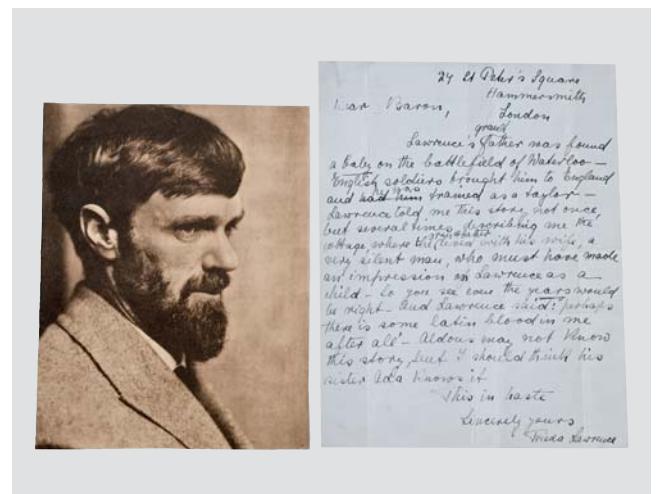 24 St Peter's Square
Hammersmith
London
Dear Baron,
grand
Lawrence's father was found
a baby on the battlefield of Waterloo —
English soldiers brought him to England
he was
and had him trained as a taylor —
Lawrence told me this story not once,
but several times, describing me the
grandfather
cottage, where the lived with his wife, a
very silent man, who must have made
an impression on Lawrence as a
child — So you see even the years would
be right — And Lawrence said: 'perhaps
there is some latin blood in me
after all' — Aldous may not know
this story, but I should think his
sister Ada knows it
This in haste
Sincerely yours
Frieda Lawrence